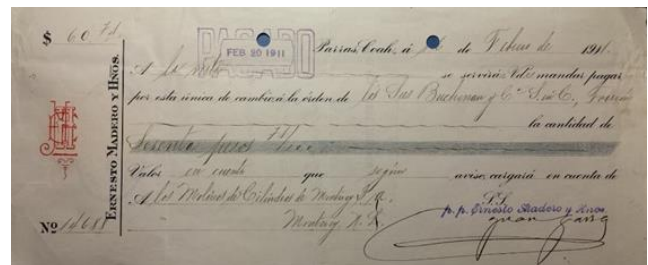 $ 60.71
PAGADO
FEB 20 1911
Parras, Coah, a de Febro de 1911.
A la vista se servirá Vds mandar pagar
por esta única de cambio á la órden de los Sres Buchanan y Cía
la cantidad de
Sesenta pesos 71/100
Valor en cuenta que según aviso, cargará en cuenta de
A los Molinos de Cilindros de Monterrey S.A. S.S.
Monterrey N.L.
p.p. Ernesto Madero y Hnos.
ERNESTO MADERO Y HÑOS.
Nº 14688